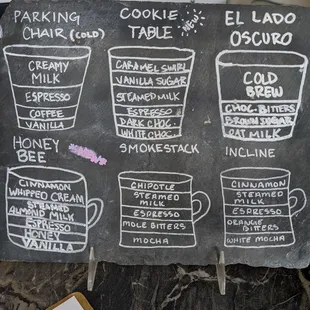 PARKING
CHAIR (COLD)
CREAMY
MILK
ESPRESSO
COFFEE
VANILLA
COOKIE
TABLE
NEW
CARAMEL SWIRL
VANILLA SUGAR
STEAMED MILK
ESPRESSO
DARK CHOC.
WHITE CHOC.
EL LADO
OSCURO
COLD
BREW
CHOC. BITTERS
BROWN SUGAR
OAT MILK
HONEY
BEE
CINNAMON
WHIPPED CREAM
STEAMED
ALMOND MILK
ESPRESSO
HONEY
VANILLA
SMOKESTACK
CHIPOTLE
STEAMED
MILK
ESPRESSO
MOLE BITTERS
MOCHA
INCLINE
CINNAMON
STEAMED
MILK
ESPRESSO
ORANGE
BITTERS
WHITE MOCHA